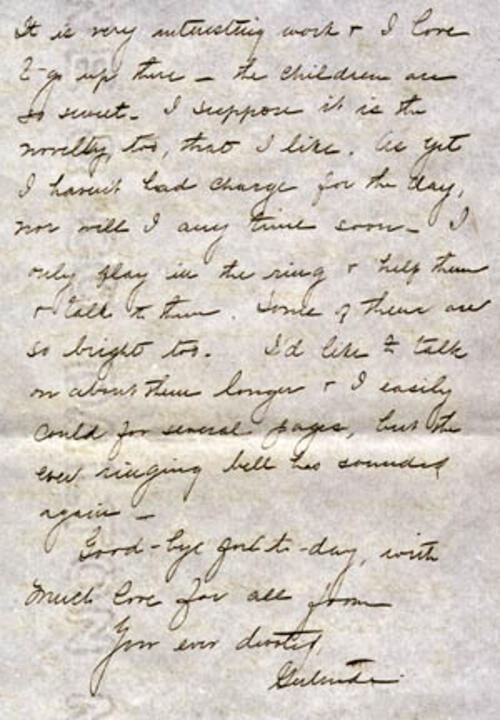 It is very interesting work + I love
to go up there – the children are
so sweet. I suppose it is the
novelty, too, that I like. As yet
I haven't had charge for the day,
nor will I any time soon – I
only play in the ring + help them
+ talk to them. Some of them are
so bright too. I'd like to talk
on about them longer + I easily
could for several pages, but the
ever ringing bell has sounded
again –
Good-bye for to-day, with
much love for all from
Your ever devoted,
Gertrude.